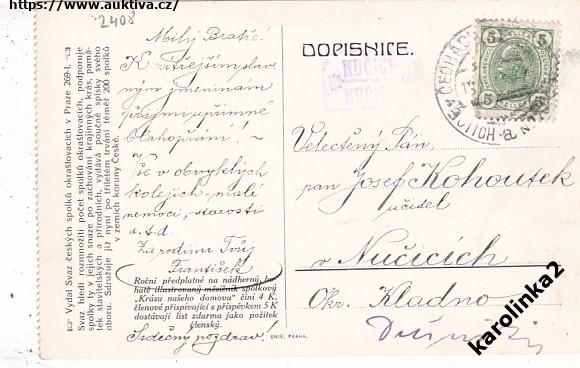 https://www.auktiva.cz/
2408
Vydal Svaz českých spolků okrašlovacích v Praze 269-I.
Svaz hledí rozmnožiti počet spolků okrašlovacích, podporuje
spolky ty v jejich snaze po zachování krajinných krás, památek
stavitelských a přírodních, vydává poučné spisky svého
oboru. Sdružuje již nyní po tříletém trvání téměř 200 spolků
v zemích koruny České.
Milý Bratře!
K zítřejším slav
ným jmeninám
přijmi upřímné
blahopřání! –
Vše v obvyklých
kolejích, malé
nemoci, starosti
a.t.d.
Za rodinu Tvůj
František
Roční předplatné na nádherný, bohatě
illustrovaný měsíčník spolkový
„Krásu našeho domova" činí 4 K,
členové přispívající s příspěvkem 5 K
dostávají list zdarma jako požitek
členský.
Srdečný pozdrav!
UNIE, PRAHA.
DOPISNICE.
NUČICE
5 5
5 5
Velectěný Pán,
pan Josef Kohoutek
učitel
v Nučicích
Okr. Kladno
karolinka2